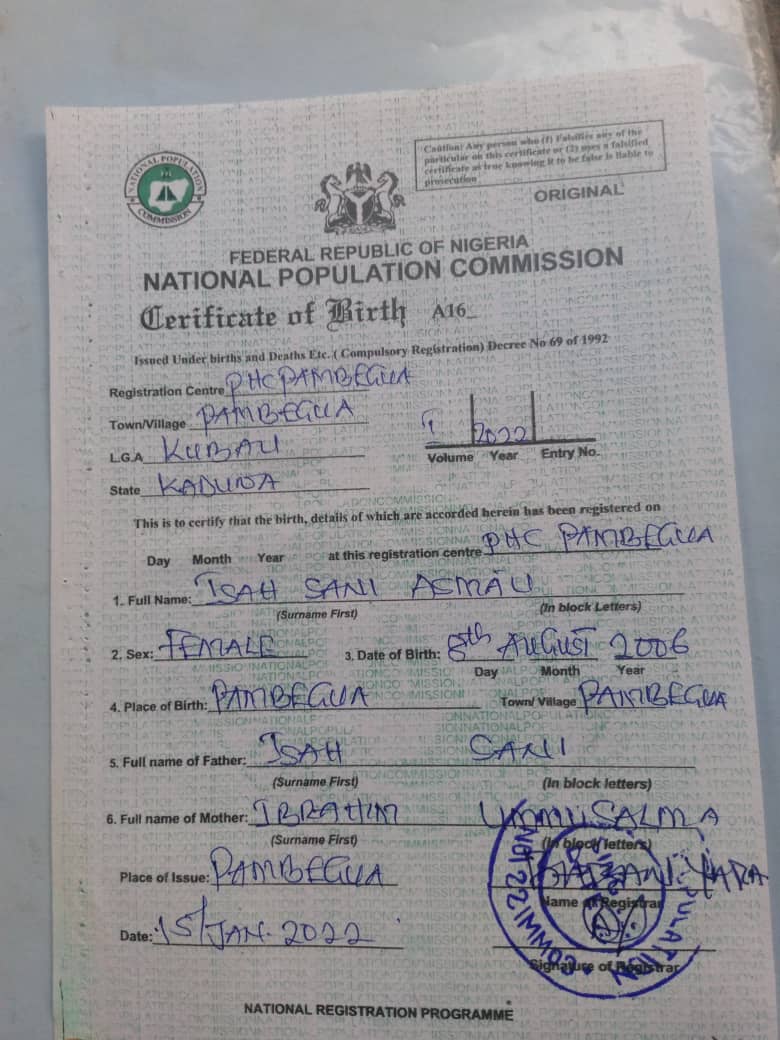 NATIONAL POPULATION
COMMISSION
Caution: Any person who (1) Falsifies any of the
particular on this certificate or (2) uses a falsified
certificate as true knowing it to be false is liable to
prosecution
ORIGINAL
FEDERAL REPUBLIC OF NIGERIA
NATIONAL POPULATION COMMISSION
Cerificate of Birth A16_
Issued Under births and Deaths Etc. ( Compulsory Registration) Decree No 69 of 1992
Registration Centre PHC PAMBEGUA
Town/Village PAMBEGUA
L.G.A KUBAU
2022
Volume Year Entry No.
State KADUNA
This is to certify that the birth, details of which are accorded herein has been registered on
Day Month Year at this registration centre PHC PAMBEGUA
1. Full Name: ISAH SANI ASMAU
(Surname First) (In block Letters)
2. Sex: FEMALE 3. Date of Birth: 8th AUGUST 2006
Day Month Year
4. Place of Birth: PAMBEGUA Town/ Village PAMBEGUA
5. Full name of Father: ISAH SANI
(Surname First) (In block letters)
6. Full name of Mother: IBRAHIM UMMUSALMA
(Surname First) (In block letters)
Place of Issue: PAMBEGUA
Name of Registrar
Date: 15/JAN. 2022
Signature of Registrar
NATIONAL REGISTRATION PROGRAMME